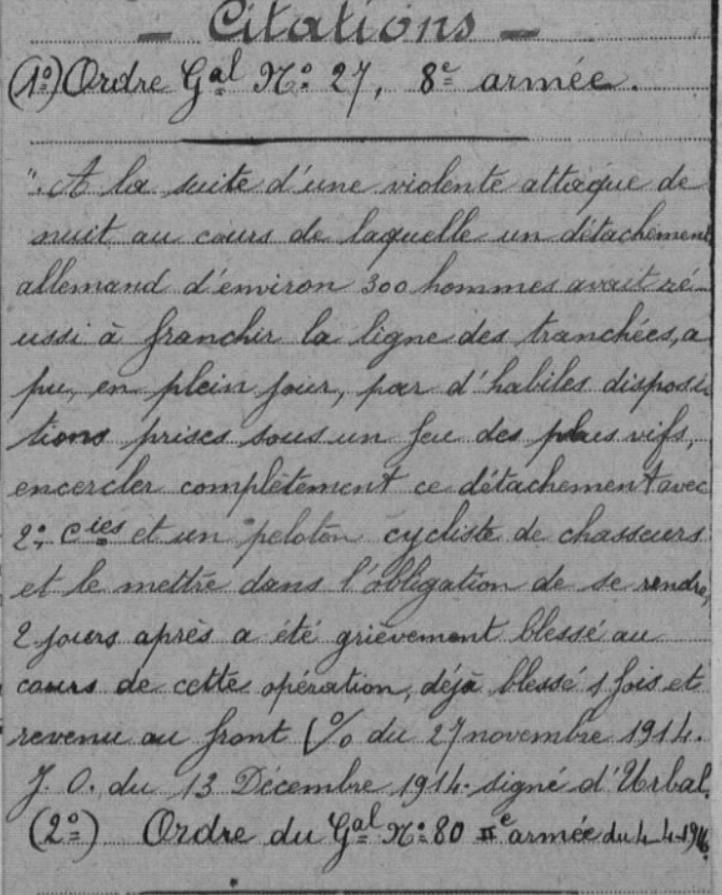 - Citations -
(1º) Ordre Gal Nº 27, 8e armée.
". A la suite d'une violente attaque de
nuit au cours de laquelle un détachement
allemand d'environ 300 hommes avait ré-
ussi à franchir la ligne des tranchées, a
pu, en plein jour, par d'habiles disposi
tions prises sous un feu des plus vifs,
encercler complètement ce détachement avec
2 Cies et un peloton cycliste de chasseurs
et le mettre dans l'obligation de se rendre,
2 jours après a été grièvement blessé au
cours de cette opération, déjà blessé 1 fois et
revenu au front (% du 27 novembre 1914.
J. O. du 13 Décembre 1914. signé d'Urbal.
(2º) Ordre du Gal Nº 80 IIe armée du 4-4-1916.